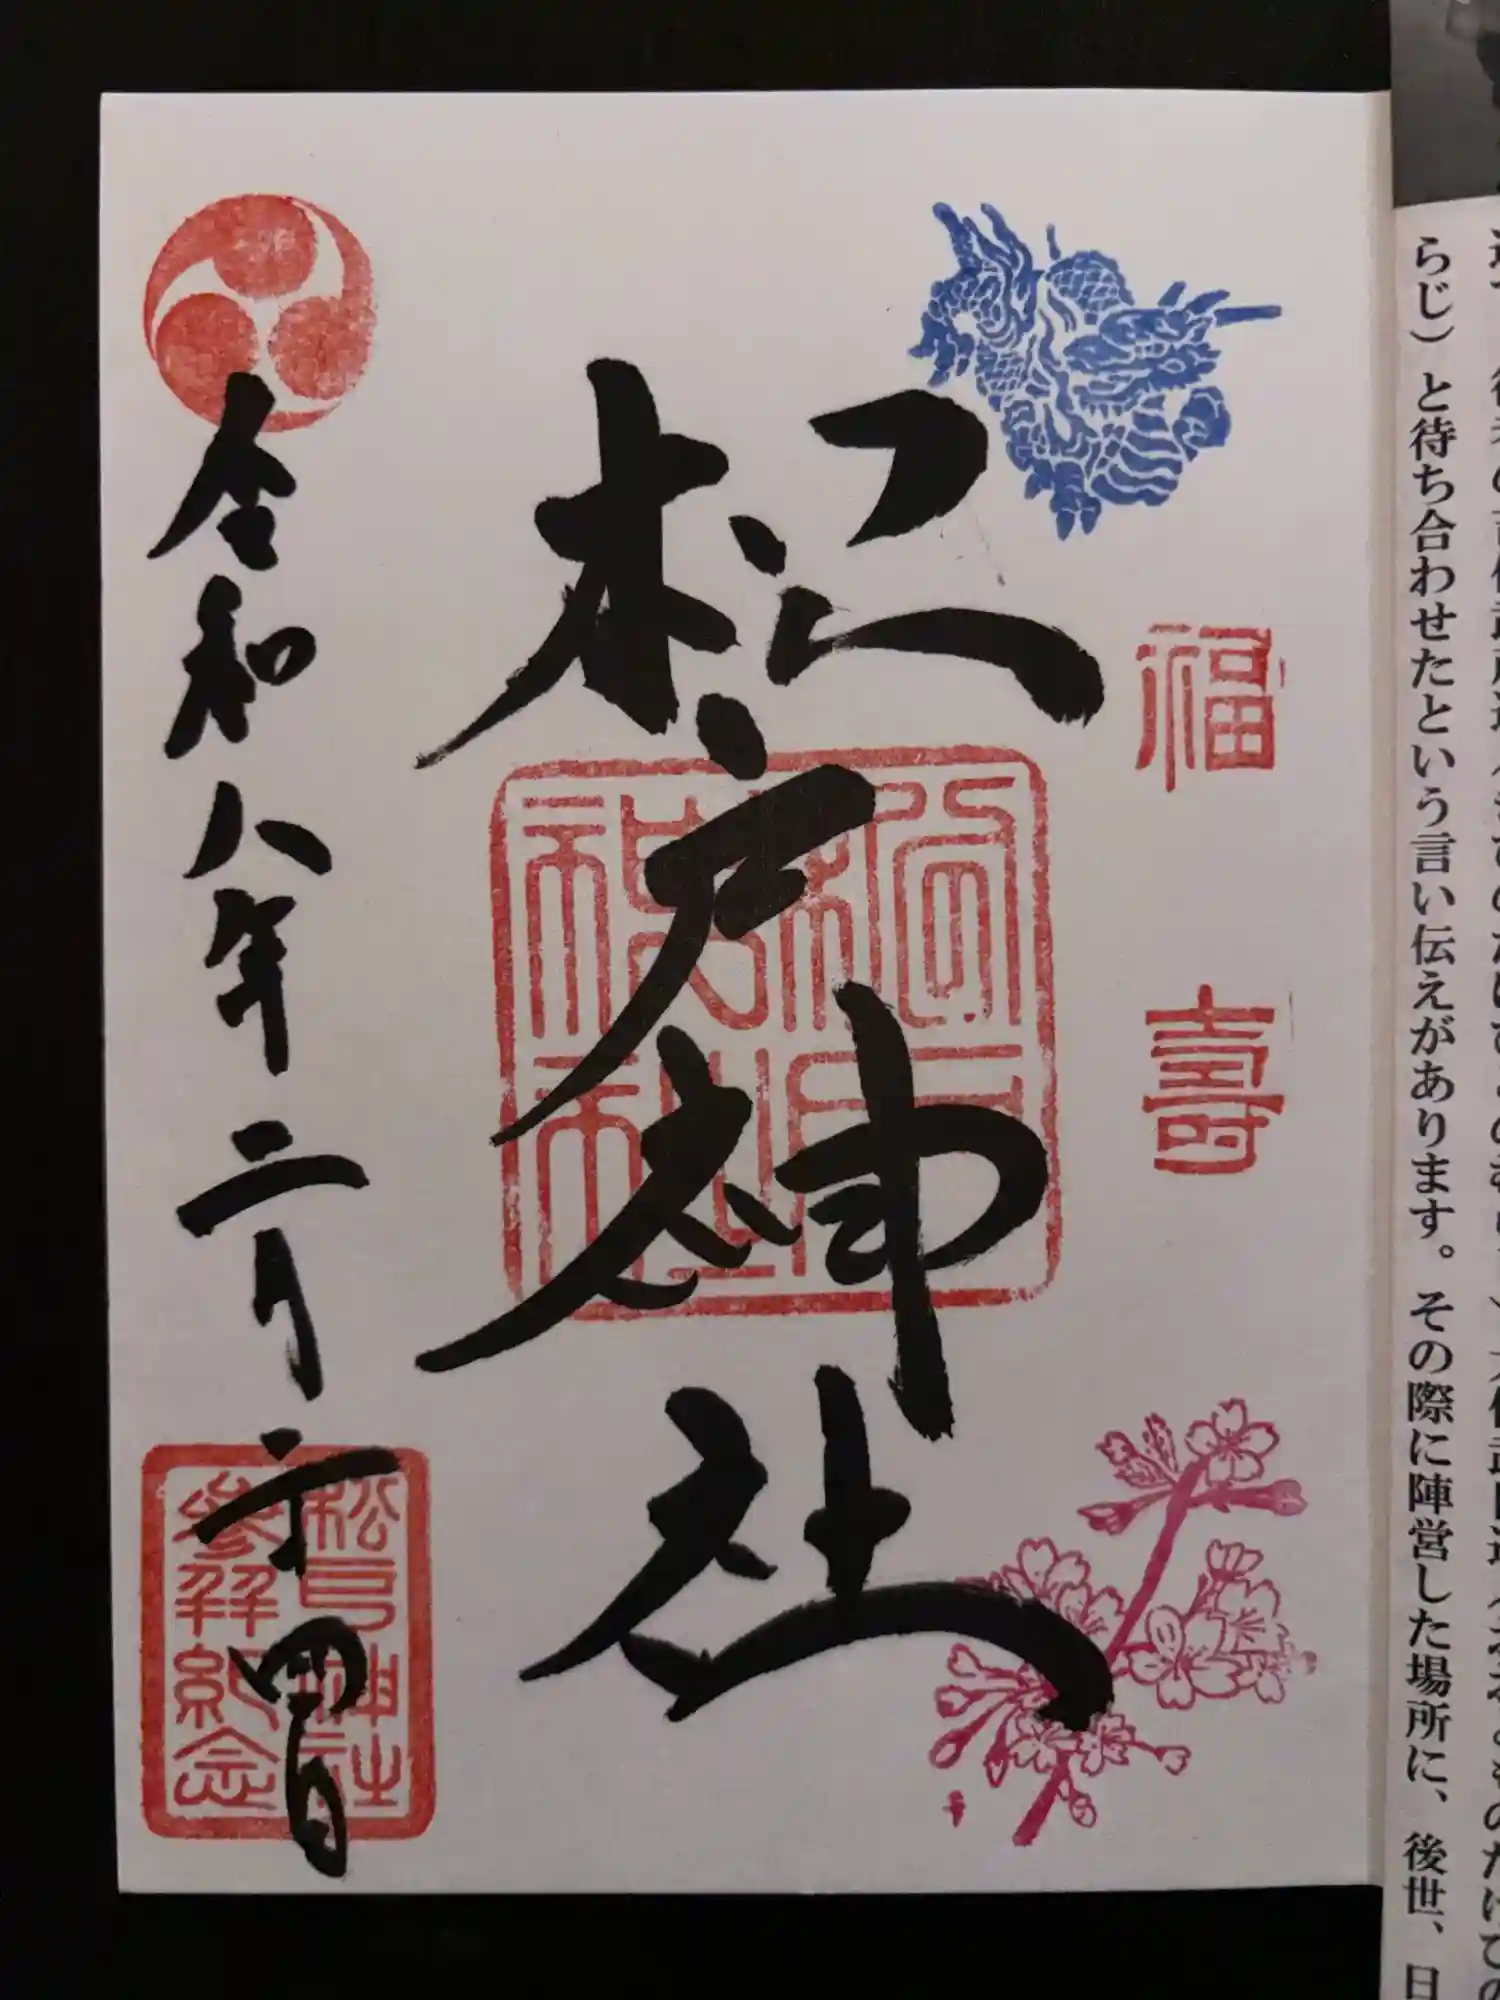 らじ）と待ち合わせたという言い伝えがあります。その際に陣営した場所に、後世、日
福
壽
松戸神社
令和八年二月二十四日
松戸神社
參拜紀念